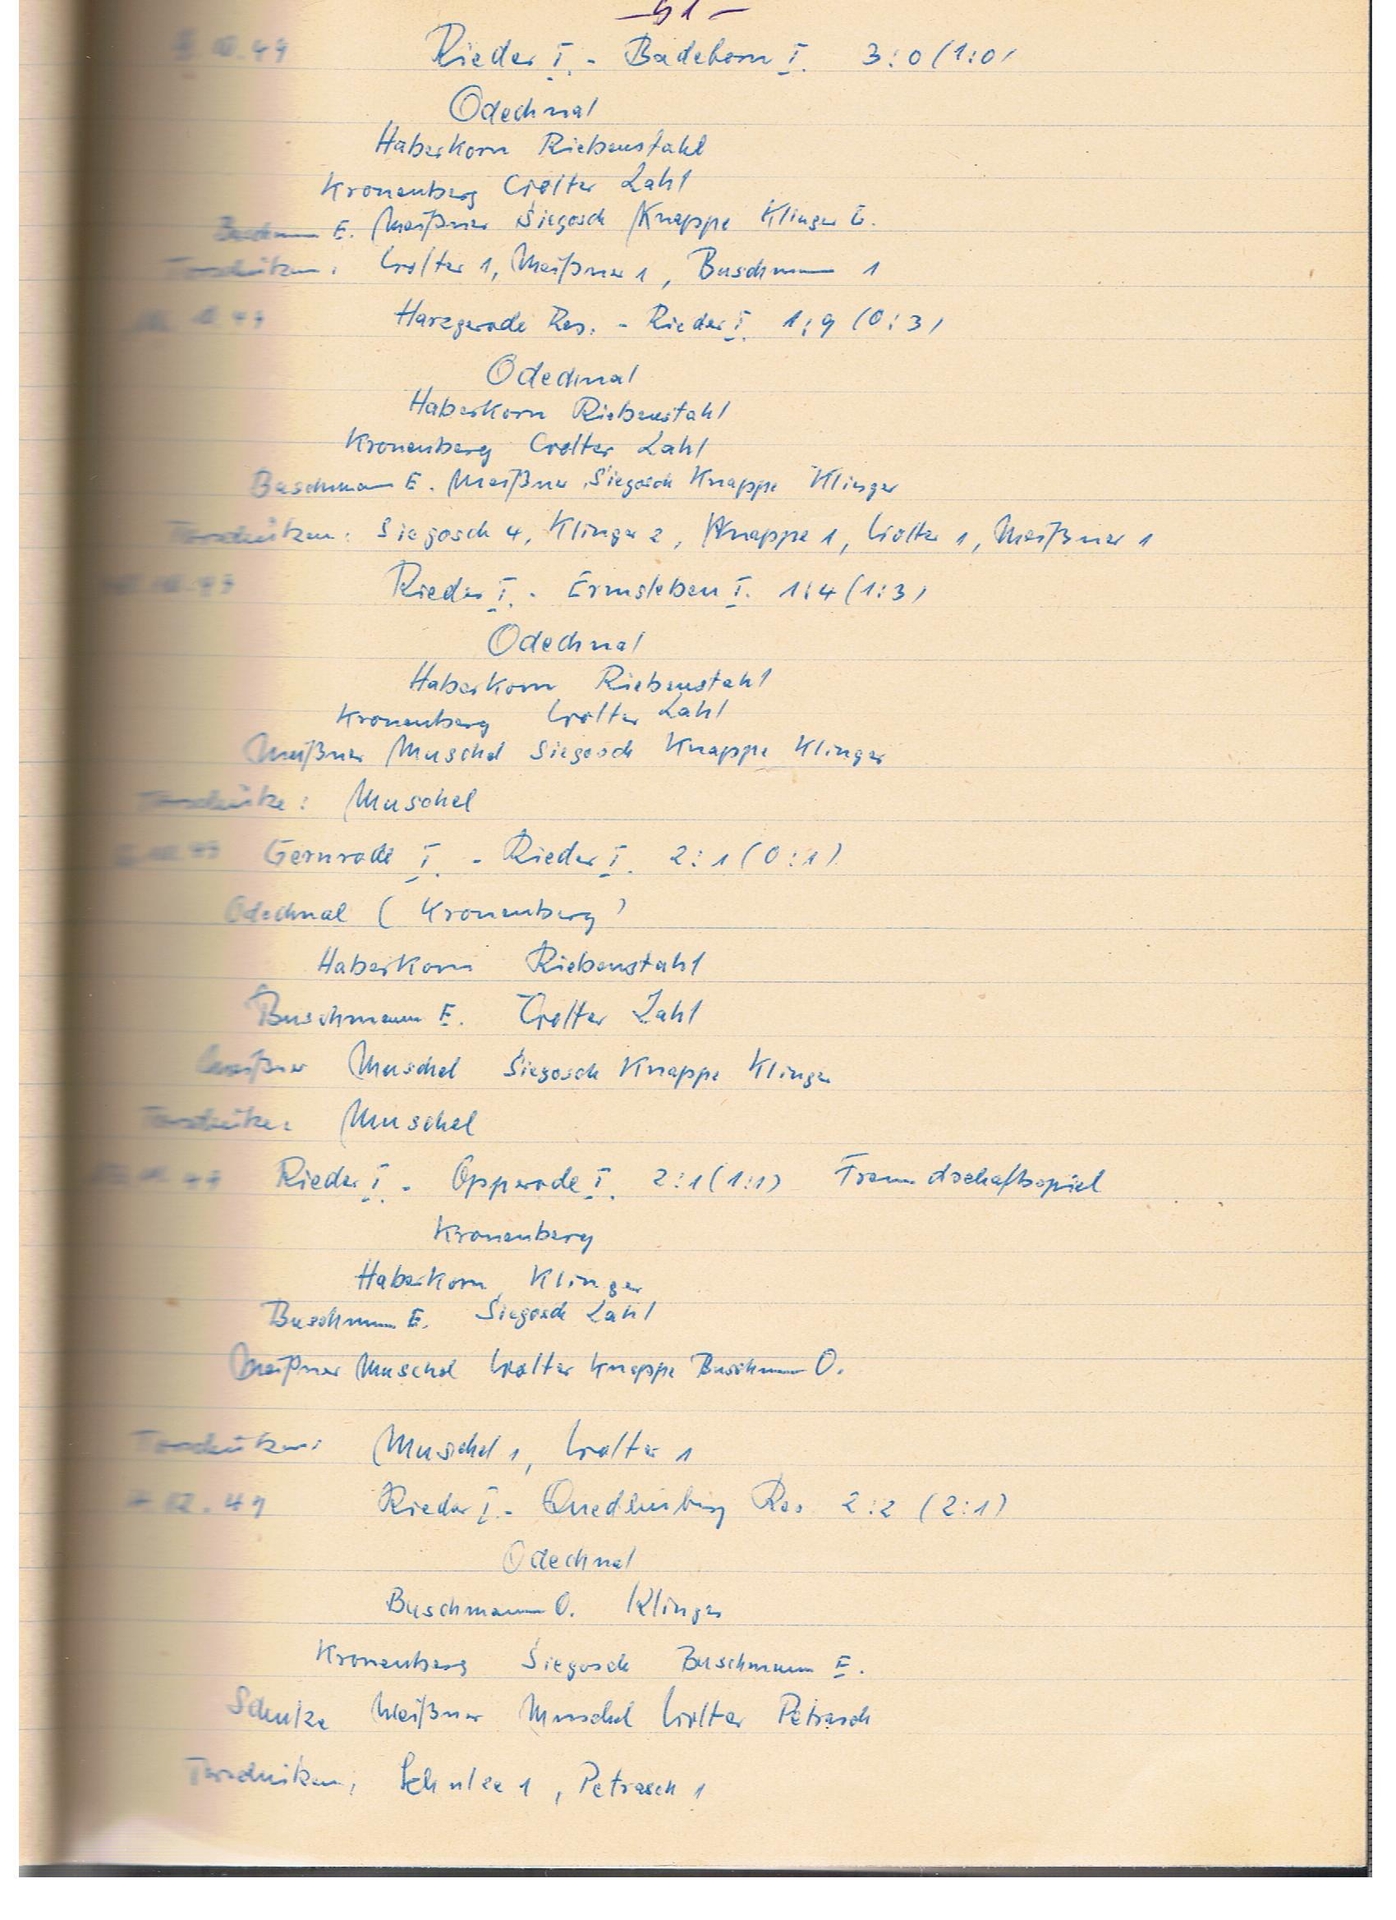 - 51 -
Rieder I. - Badeborn I. 3:0 (1:0)
Odechnal
Haberkorn Riebenstahl
Kronenberg Wolter Zahl
Buschmann E. Meißner Siegosch Knappe Klinger E.
Torschützen: Wolter 1, Meißner 1, Buschmann 1
Harzgerode Res. - Rieder I. 1:9 (0:3)
Odechnal
Haberkorn Riebenstahl
Kronenberg Wolter Zahl
Buschmann E. Meißner Siegosch Knappe Klinger
Torschützen: Siegosch 4, Klinger 2, Knappe 1, Wolter 1, Meißner 1
Rieder I. - Ermsleben I. 1:4 (1:3)
Odechnal
Haberkorn Riebenstahl
Kronenberg Wolter Zahl
Meißner Muschel Siegosch Knappe Klinger
Torschütze: Muschel
Gernrode I. - Rieder I. 2:1 (0:1)
Odechnal (Kronenberg)
Haberkorn Riebenstahl
Buschmann E. Wolter Zahl
Meißner Muschel Siegosch Knappe Klinger
Torschütze: Muschel
Rieder I. - Opperode I. 2:1 (1:1) Freundschaftsspiel
Kronenberg
Haberkorn Klinger
Buschmann E. Siegosch Zahl
Meißner Muschel Wolter Knappe Buschmann O.
Torschützen: Muschel 1, Wolter 1
12.49 Rieder I. - Quedlinburg Res 2:2 (2:1)
Odechnal
Buschmann O. Klinger
Kronenberg Siegosch Buschmann E.
Schulze Meißner Muschel Wolter Petrasch
Torschützen: Schulze 1, Petrasch 1